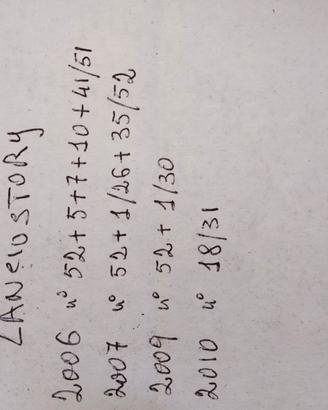 LANCIOSTORY
2006 n° 52+5+7+10+41/51
2007 n° 52+1/26+35/52
2009 n° 52+1/30
2010 n° 18/31